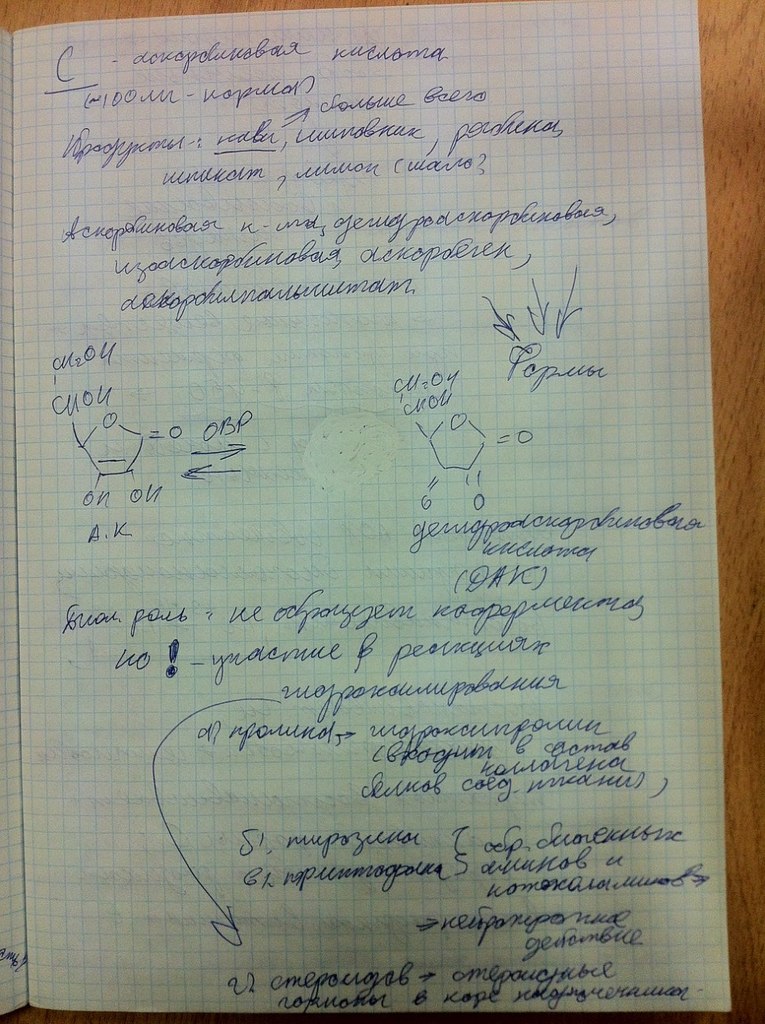 С - аскорбиновая кислота
(~100мг - норма)
→ больше всего
Продукты: киви, шиповник, рябина,
шпинат, лимон (мало)
Аскорбиновая к-та, дегидроаскорбиновая,
изоаскорбиновая, аскорбиген,
аскорбилпальмитат.
Формы
CH2OH
CHOH
O
=O
OH OH
А.К
ОВР
CH2OH
CHOH
O
=O
O O
дегидроаскорбиновая
кислота
(ДАК)
Биол. роль: не образует кофермента,
НО ! - участие в реакциях
гидроксилирования
а) пролина → гидроксипролин
(входит в состав
коллагена
белков соед. ткани),
б) тирозина } обр. биогенных
в) триптофана } аминов и
катехоламинов →
→ нейротропное
действие
г) стероидов → стероидные
гормоны в коре надпочечников.